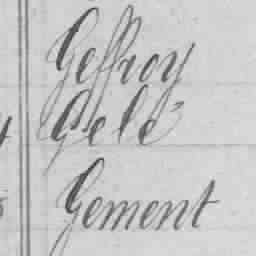 Geffroy
Gelé
Gement